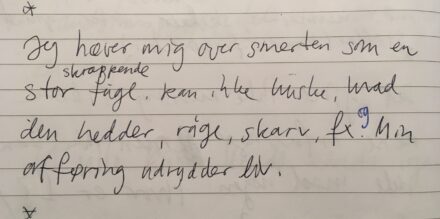 *
Jeg hæver mig over smerten som en
skræppende
stor fugl. kan ikke huske, hvad
den hedder, råge, skarv, fx. og Min
afføring udrydder liv.
*